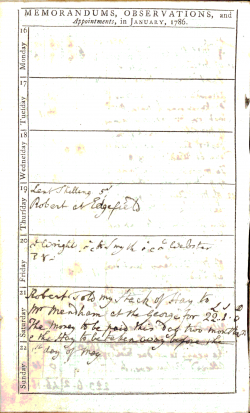 MEMORANDUMS, OBSERVATIONS, and
Appointments, in JANUARY, 1786.
16
Monday
17
Tuesday
18
Wednesday
19
Thursday
Lent Skilling 5s
Robert at Edgefield
20
Friday
J Wright Webster
21
Saturday
Robert sold my Stack of Hay to £ s d
Mr Mendham at the George for 22.1.0
The money to be paid this Day two months
& the Hay to be taken away before the
22
Sunday
1st Day of May